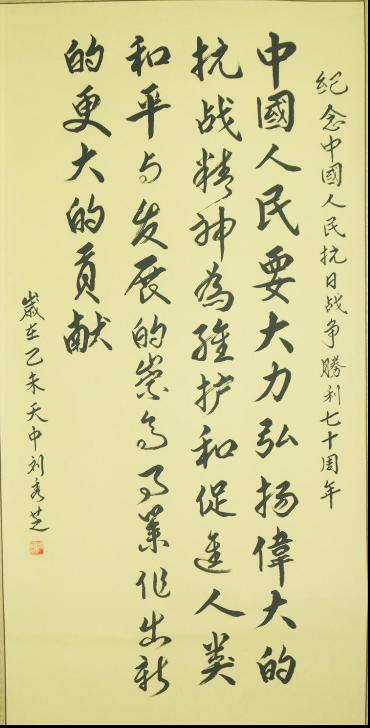 纪念中國人民抗日战争勝利七十周年
中國人民要大力弘扬偉大的
抗战精神為维护和促進人类
和平与发展的崇高事業作出新
的更大的貢献
歲在乙未天中刘秀芝